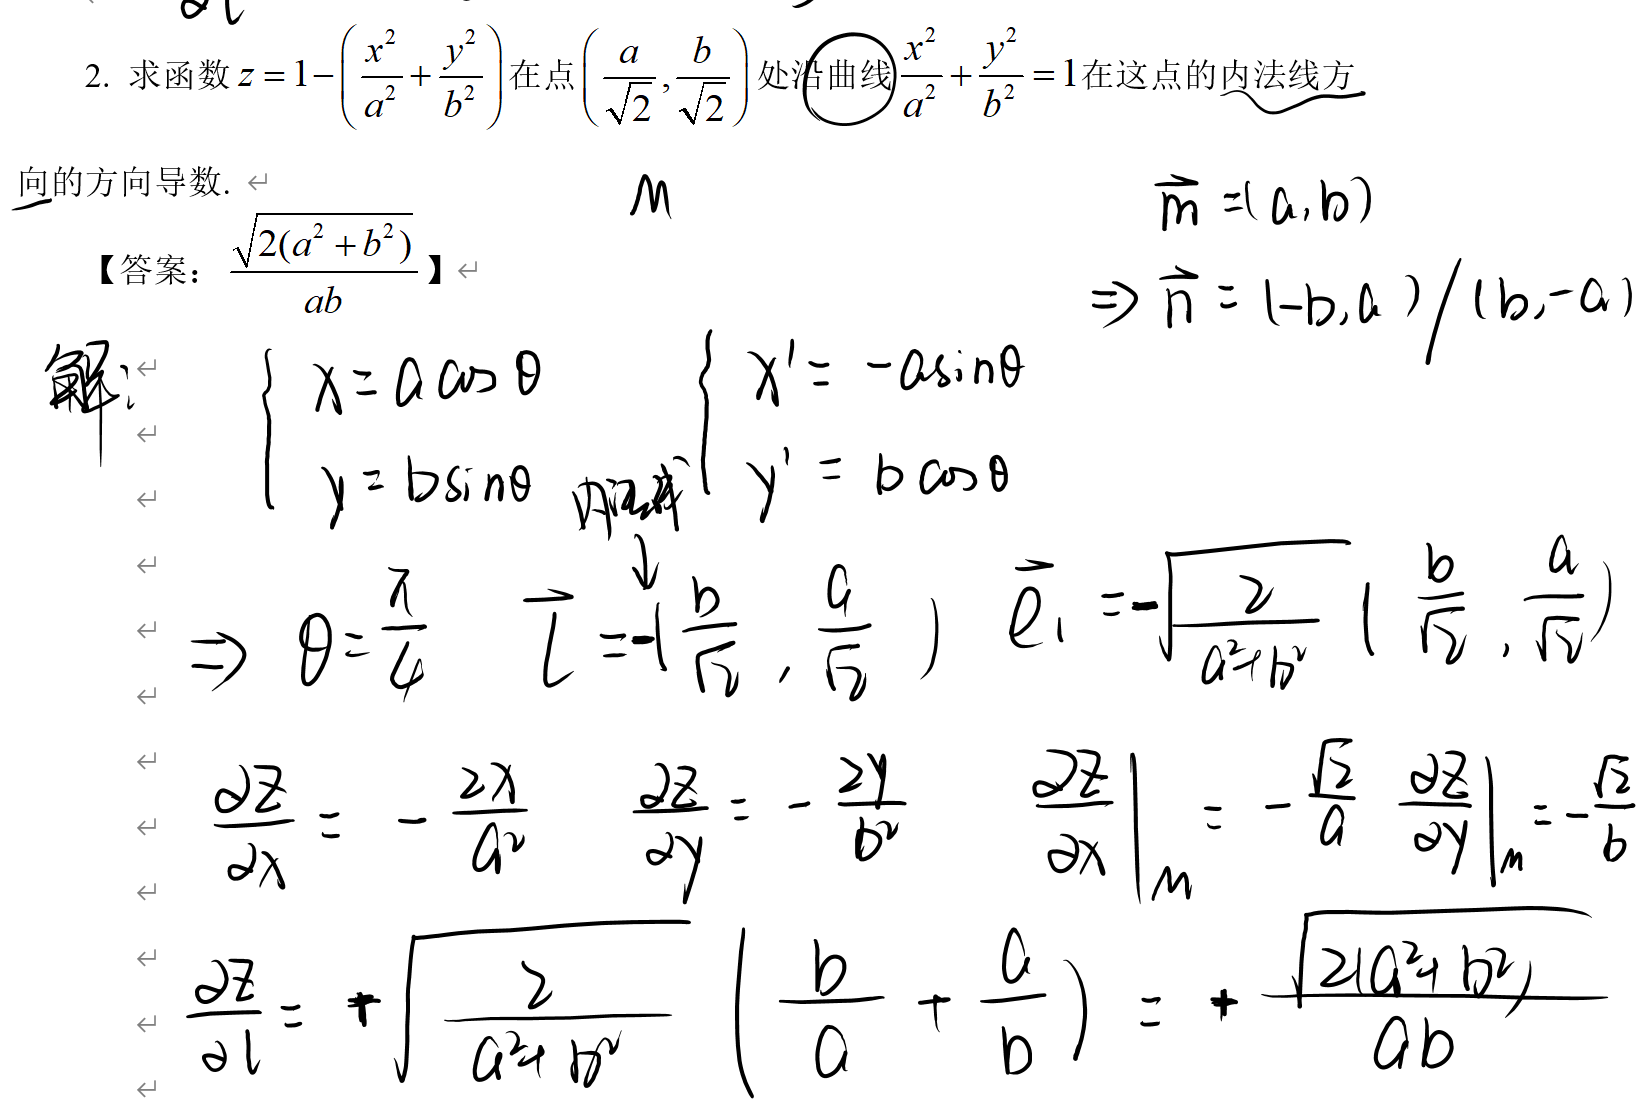 2. 求函数 z = 1 − (x²/a² + y²/b²) 在点 (a/√2, b/√2) 处沿曲线 x²/a² + y²/b² = 1 在这点的内法线方
向的方向导数. ↵
M
m⃗ = (a, b)
【答案: √(2(a² + b²)) / ab】↵
⇒ n⃗ = (-b, a) / (b, -a)
解: { x = a cos θ { x' = -a sin θ
y = b sin θ y' = b cos θ
内法线 ↓
⇒ θ = π/4 l⃗ = -(b/√2, a/√2) e⃗₁ = -√(2/(a²+b²)) (b/√2, a/√2)
∂z/∂x = - 2x/a² ∂z/∂y = - 2y/b² ∂z/∂x|M = - √2/a ∂z/∂y|M = - √2/b
∂z/∂l = + √(2/(a²+b²)) (b/a + a/b) = + √(2(a²+b²)) / ab